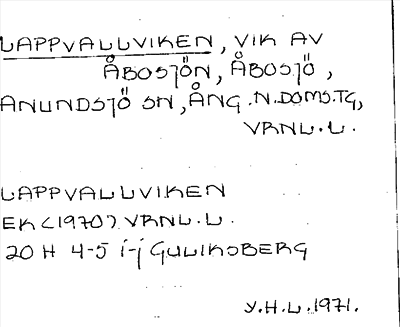 LAPPVALLVIKEN, VIK AV
ÅBOSJÖN, ÅBOSJÖ,
ANUNDSJÖ SN, ÅNG. N. DOMS. TG,
VRNL. L.
LAPPVALLVIKEN
EK (1970) VRNL. L.
20 H 4-5 i-j GULIKSBERG
Y.H.L. 1971.